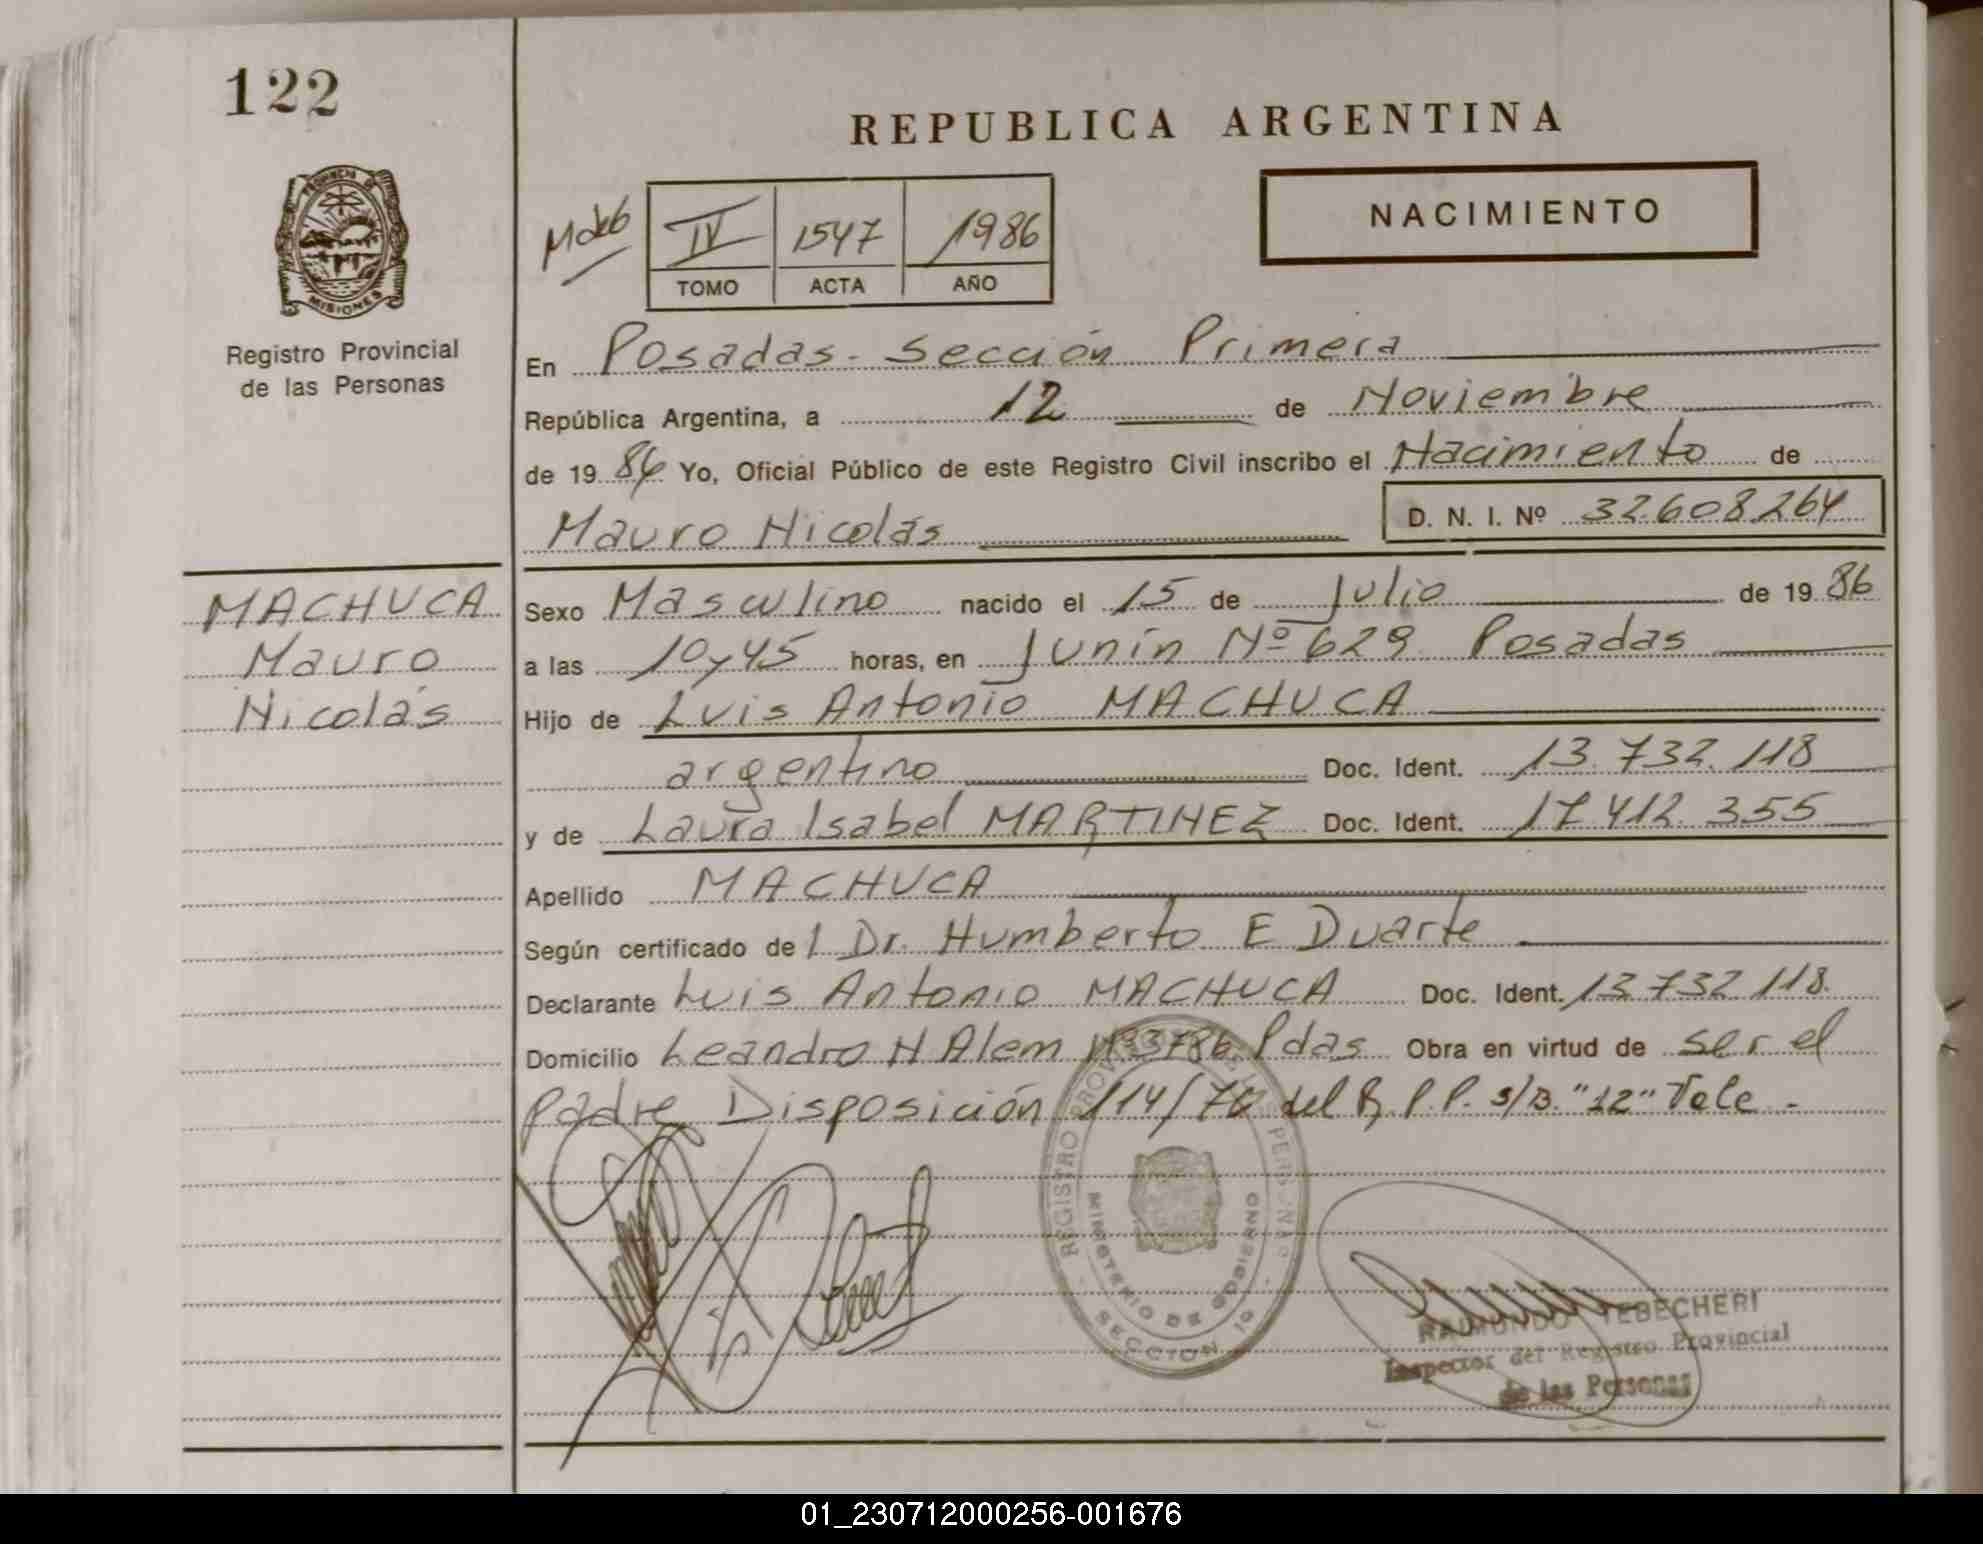 122
REPUBLICA ARGENTINA
NACIMIENTO
IV 1547 1986
TOMO ACTA AÑO
PROVINCIA DE
MISIONES
Registro Provincial
de las Personas
En Posadas - Sección Primera
República Argentina, a 12 de Noviembre
de 19 86 Yo, Oficial Público de este Registro Civil inscribo el Nacimiento de
Mauro Nicolás D. N. I. Nº 32.608.264
MACHUCA
Mauro
Nicolás
Sexo Masculino nacido el 15 de Julio de 19 86
a las 10y45 horas, en Junín Nº 629 Posadas
Hijo de Luis Antonio MACHUCA
argentino Doc. Ident. 13.732.118
y de Laura Isabel MARTINEZ Doc. Ident. 17.412.355
Apellido MACHUCA
Según certificado del Dr. Humberto E Duarte
Declarante Luis Antonio MACHUCA Doc. Ident. 13.732.118.
Domicilio Leandro N Alem Nº3786 Pdas Obra en virtud de ser el
padre Disposición 114/70 del R.P.P. s/B. "12" Vale -
REGISTRO PROVINCIAL DE LAS PERSONAS
MINISTERIO DE GOBIERNO
SECCION 1º
RAIMUNDO TEBECHERI
Inspector del Registro Provincial
de las Personas
01_230712000256-001676